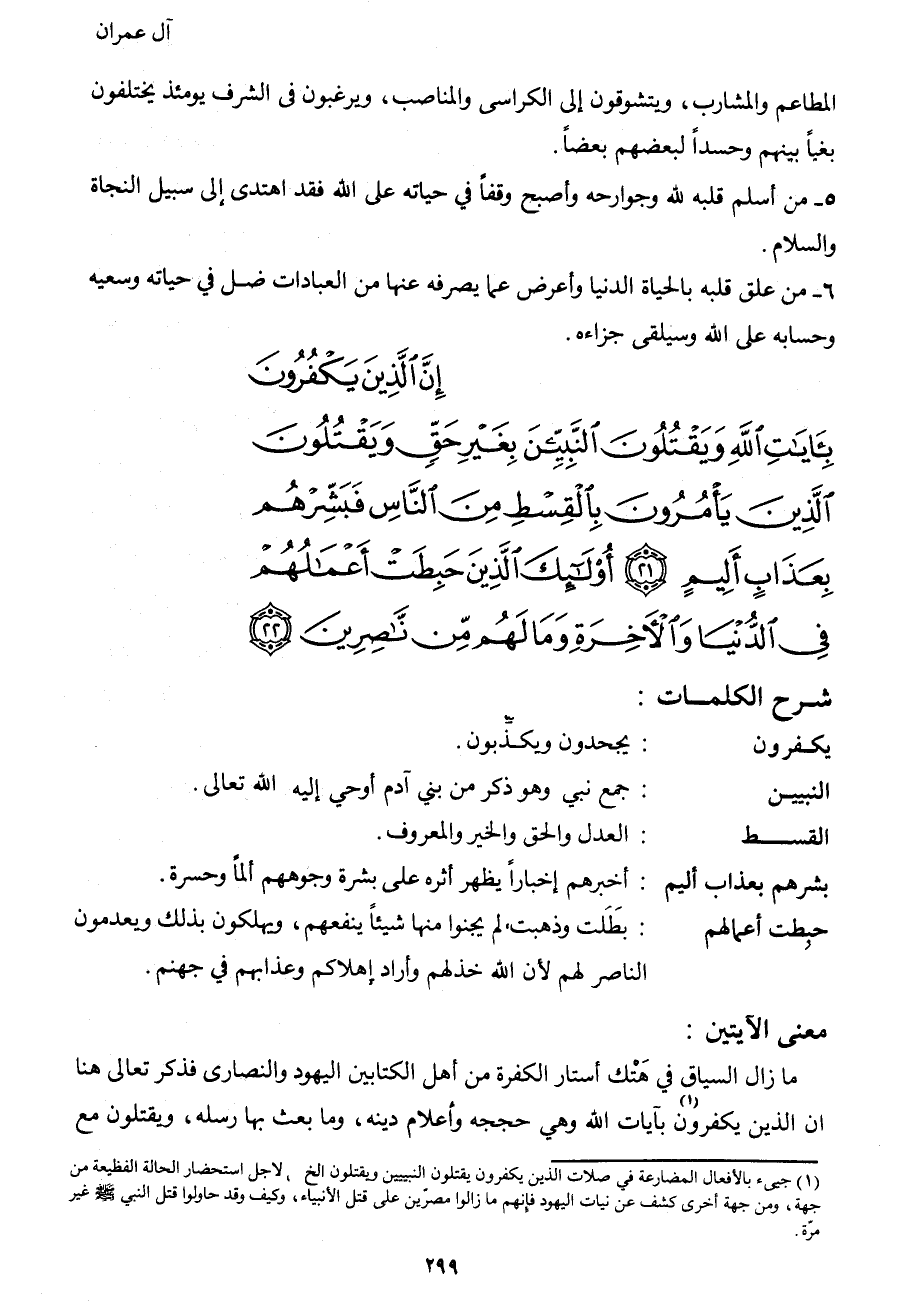 آل عمران
المطاعم والمشارب، ويتشوقون إلى الكراسى والمناصب، ويرغبون فى الشرف يومئذ يختلفون
بغياً بينهم وحسداً لبعضهم بعضاً.
٥ـ من أسلم قلبه لله وجوارحه وأصبح وقفاً في حياته على الله فقد اهتدى إلى سبيل النجاة
والسلام.
٦ـ من علق قلبه بالحياة الدنيا وأعرض عما يصرفه عنها من العبادات ضل في حياته وسعيه
وحسابه على الله وسيلقى جزاءه.
إِنَّ ٱلَّذِينَ يَكۡفُرُونَ
بِـَٔايَٰتِ ٱللَّهِ وَيَقۡتُلُونَ ٱلنَّبِيِّـۧنَ بِغَيۡرِ حَقّٖ وَيَقۡتُلُونَ
ٱلَّذِينَ يَأۡمُرُونَ بِٱلۡقِسۡطِ مِنَ ٱلنَّاسِ فَبَشِّرۡهُم
بِعَذَابٍ أَلِيمٍ ﴿٢١﴾ أُوْلَٰٓئِكَ ٱلَّذِينَ حَبِطَتۡ أَعۡمَٰلُهُمۡ
فِي ٱلدُّنۡيَا وَٱلۡأٓخِرَةِ وَمَا لَهُم مِّن نَّٰصِرِينَ ﴿٢٢﴾
شرح الكلمات :
يكفرون : يجحدون ويكذّبون.
النبيين : جمع نبي وهو ذكر من بني آدم أوحي إليه الله تعالى.
القسط : العدل والحق والخير والمعروف.
بشرهم بعذاب أليم : أخبرهم إخباراً يظهر أثره على بشرة وجوههم ألماً وحسرة.
حبِطت أعمالهم : بطَلت وذهبت، لم يجنوا منها شيئاً ينفعهم، ويهلكون بذلك ويعدمون
الناصر لهم لأن الله خذلهم وأراد إهلاكم وعذابهم في جهنم.
معنى الآيتين :
ما زال السياق في هَتْك أستار الكفرة من أهل الكتابين اليهود والنصارى فذكر تعالى هنا
ان الذين يكفرون(١) بآيات الله وهي حججه وأعلام دينه، وما بعث بها رسله، ويقتلون مع
(١) جيىء بالأفعال المضارعة في صلات الذين يكفرون يقتلون النبيين ويقتلون الخ، لاجل استحضار الحالة الفظيعة من
جهة، ومن جهة أخرى كشف عن نيات اليهود فإنهم ما زالوا مصرّين على قتل الأنبياء، وكيف وقد حاولوا قتل النبي ﷺ غير
مرّة.
٢٩٩